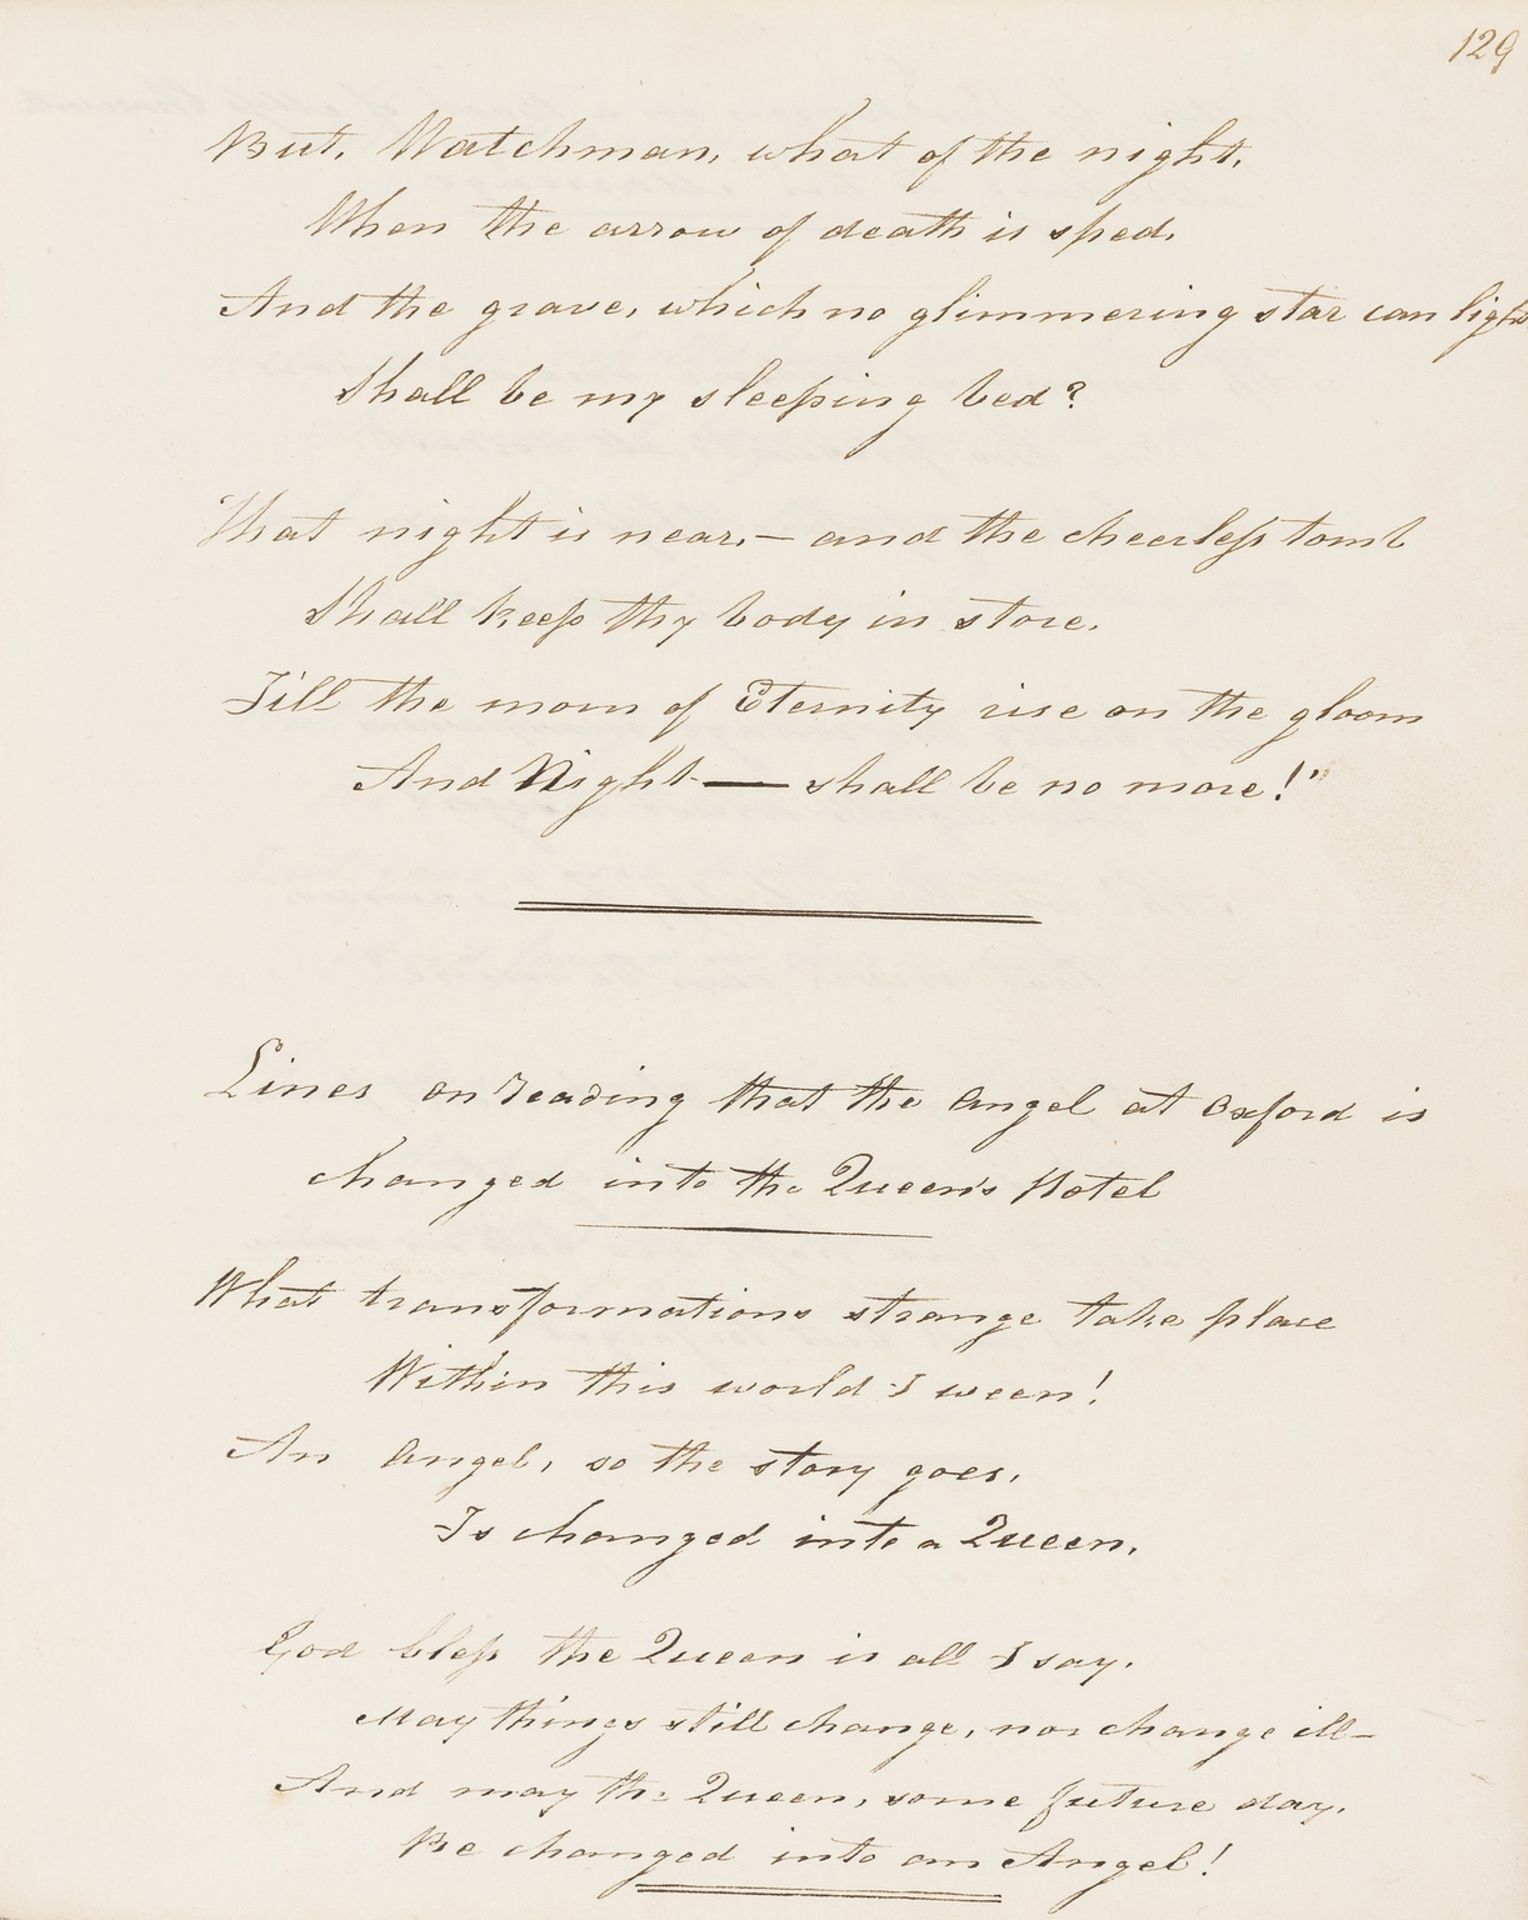 129
But, Watchman, what of the night,
When the arrow of death is sped,
And the grave, which no glimmering star can light
Shall be my sleeping bed?
That night is near,— and the cheerless tomb
Shall keep thy body in store,
Till the morn of Eternity rise on the gloom
And Night — shall be no more!"
Lines on reading that the Angel at Oxford is
changed into the Queen's Hotel
What transformations strange take place
Within this world I ween!
An Angel, so the story goes,
Is changed into a Queen.
God bless the Queen is all I say,
May things still change, nor change ill—
And may the Queen, some future day,
Be changed into an Angel!